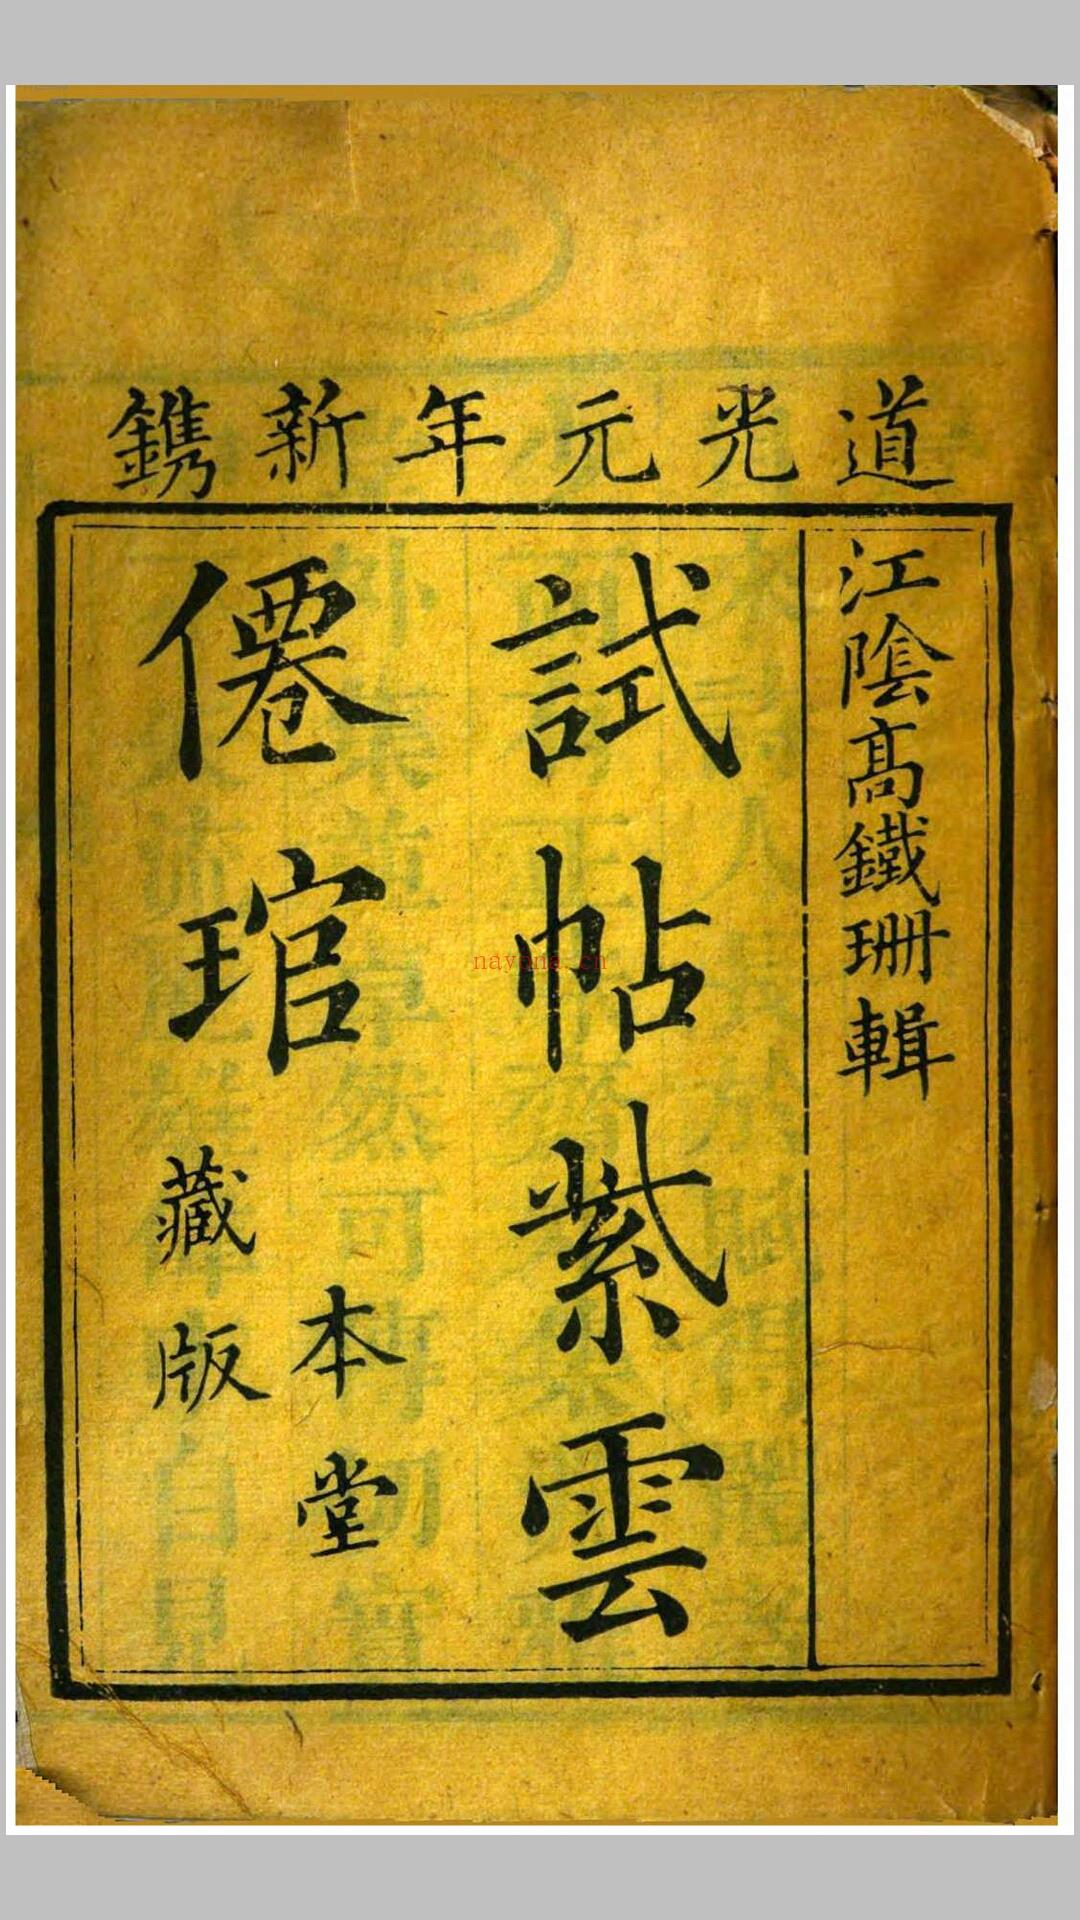 道光元年新鐫
江陰高鐵珊輯
試帖紫雲
僊琯
本堂
藏版
nayona.cn